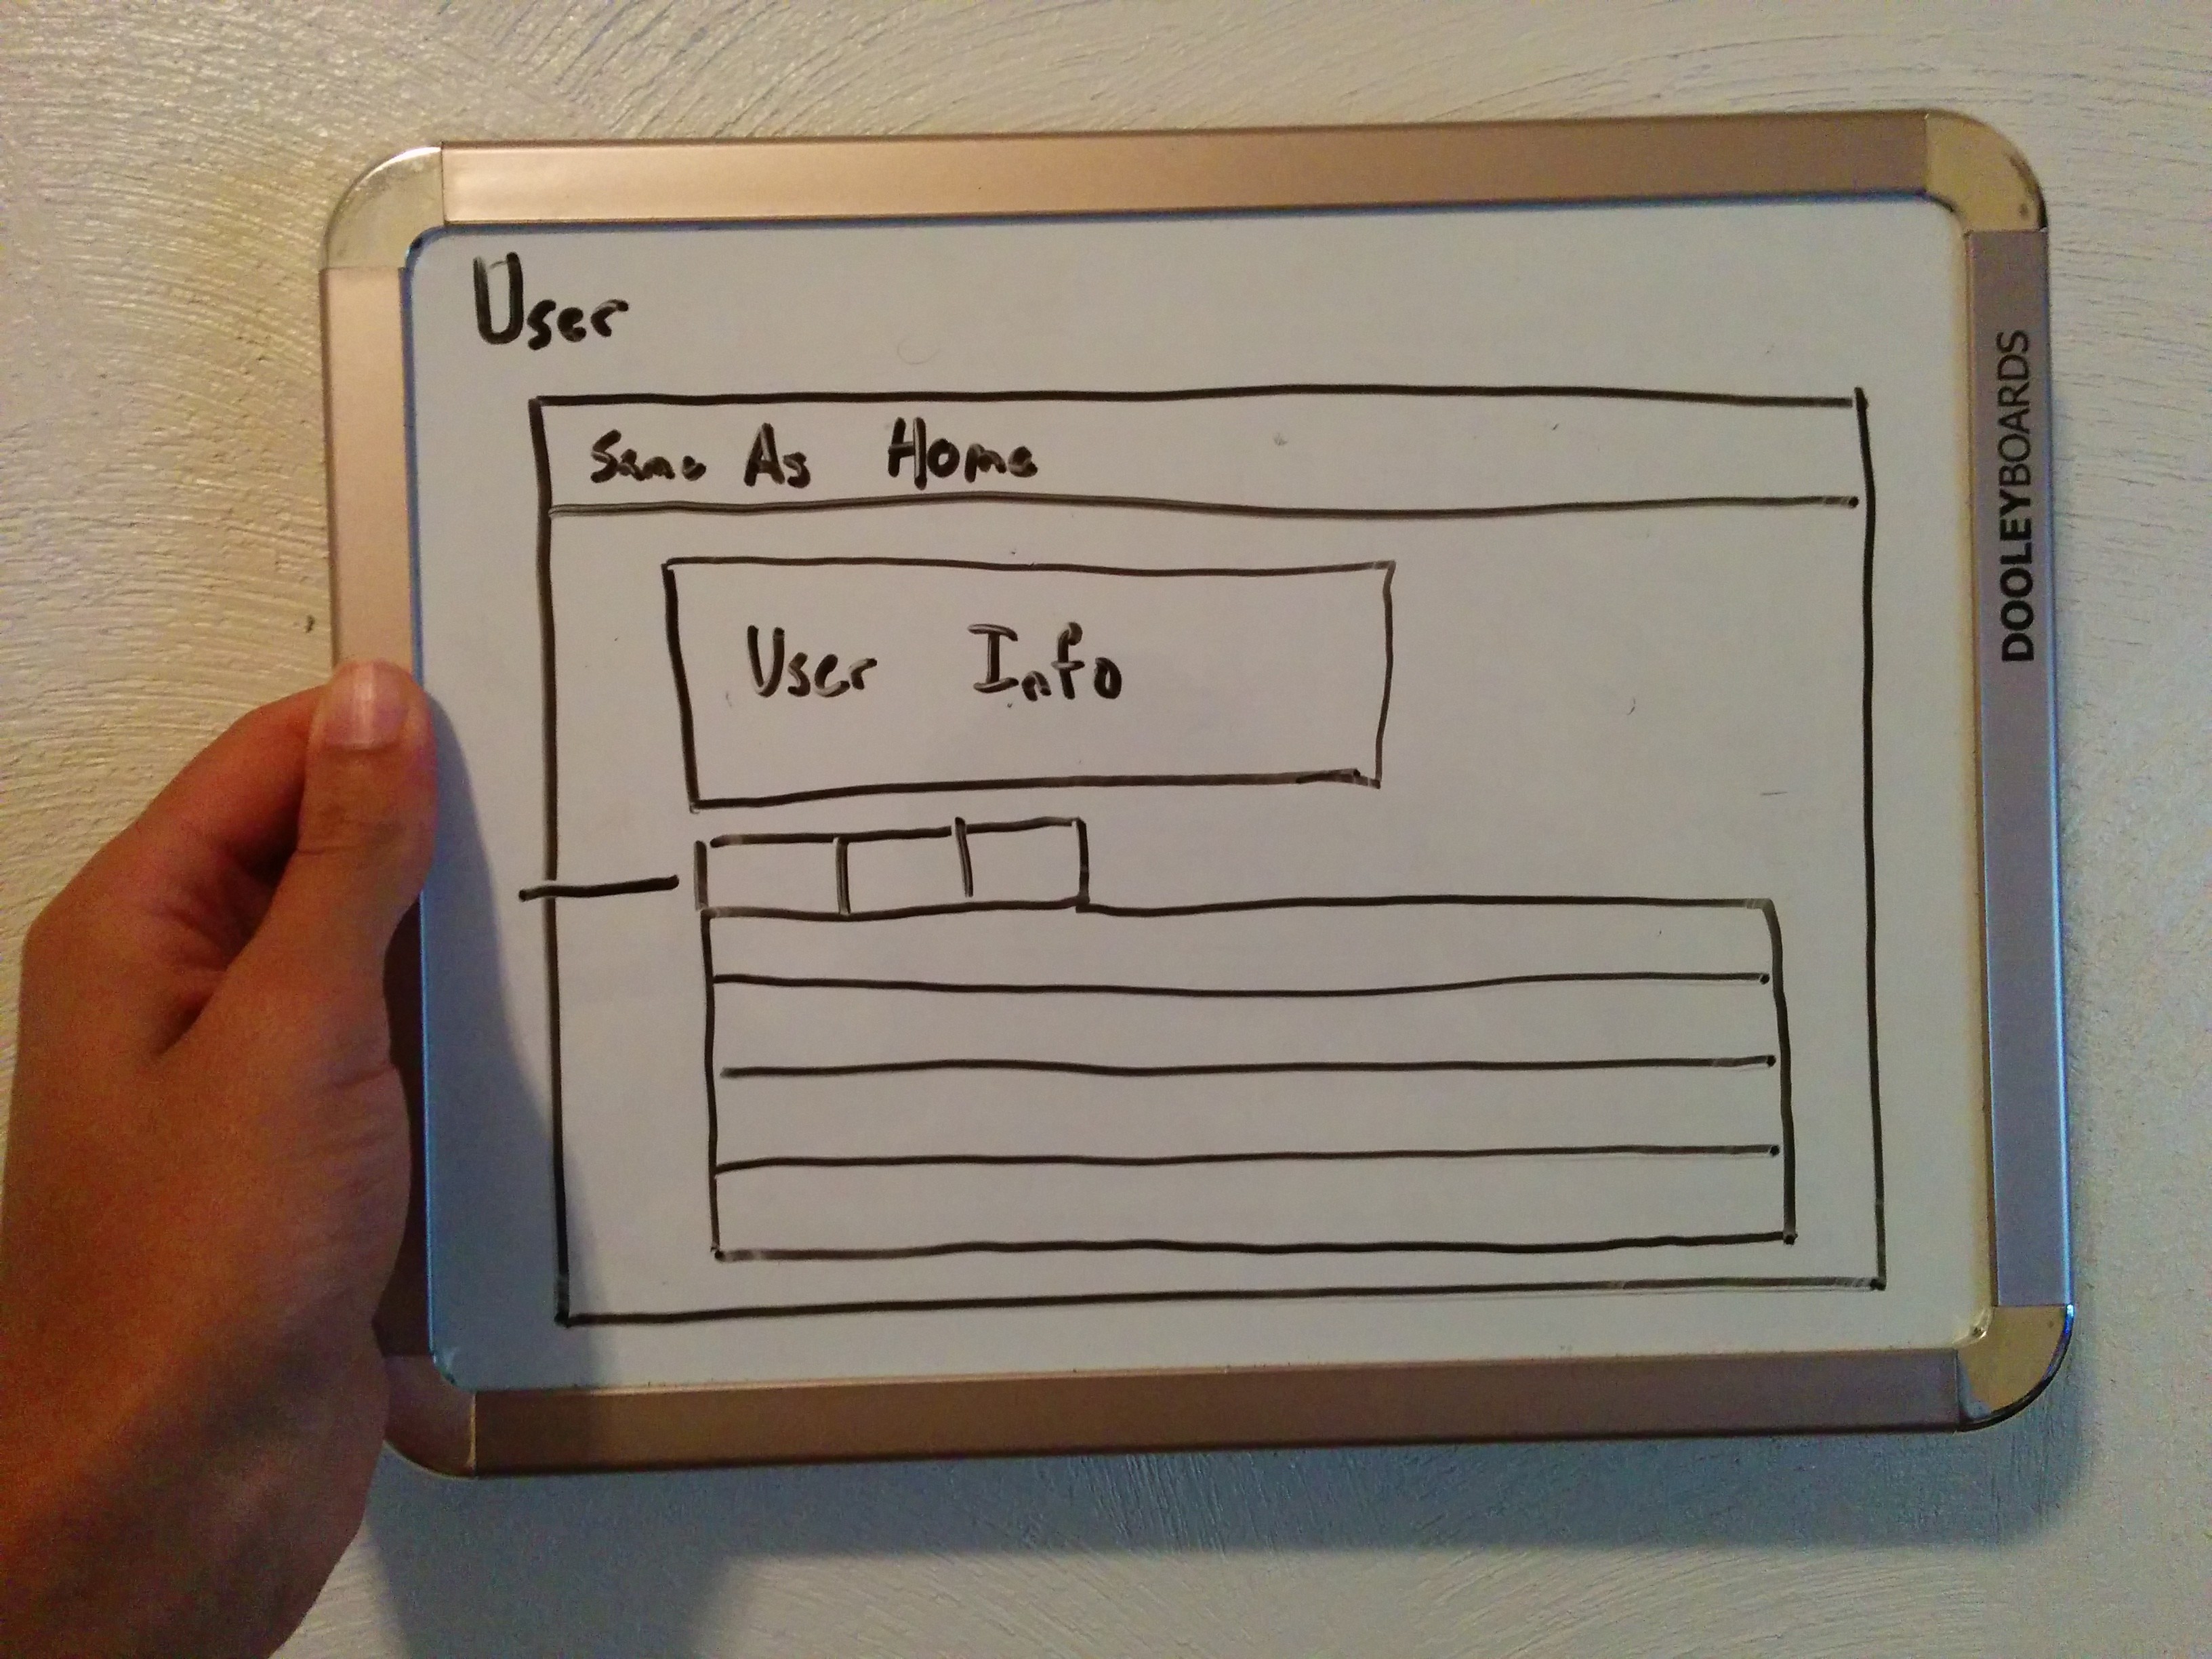 User
Same As Home
User Info
DOOLEYBOARDS